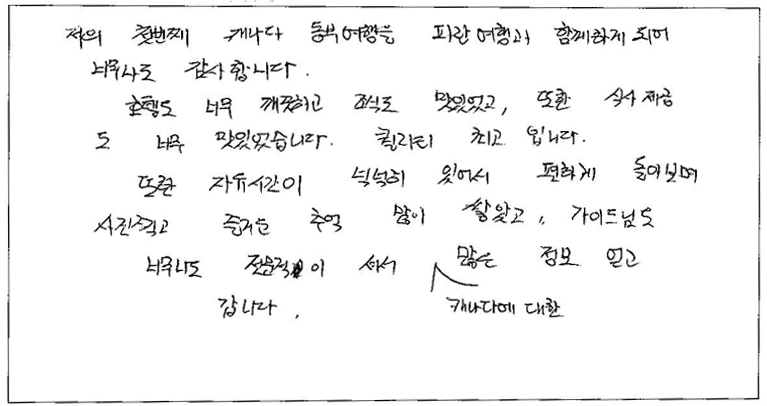 저의 첫번째 캐나다 동부여행을 파란여행과 함께하게 되어
너무나도 감사합니다.
호텔도 너무 깨끗하고 조식도 맛있었고, 또한 식사 제공
도 너무 맛있었습니다. 퀄리티 최고 입니다.
또한 자유시간이 넉넉히 있어서 편하게 돌아보며
사진찍고 즐거운 추억 많이 쌓았고, 가이드님도
너무나도 전문적이셔서 많은 정보 얻고
갑니다. 캐나다에 대한